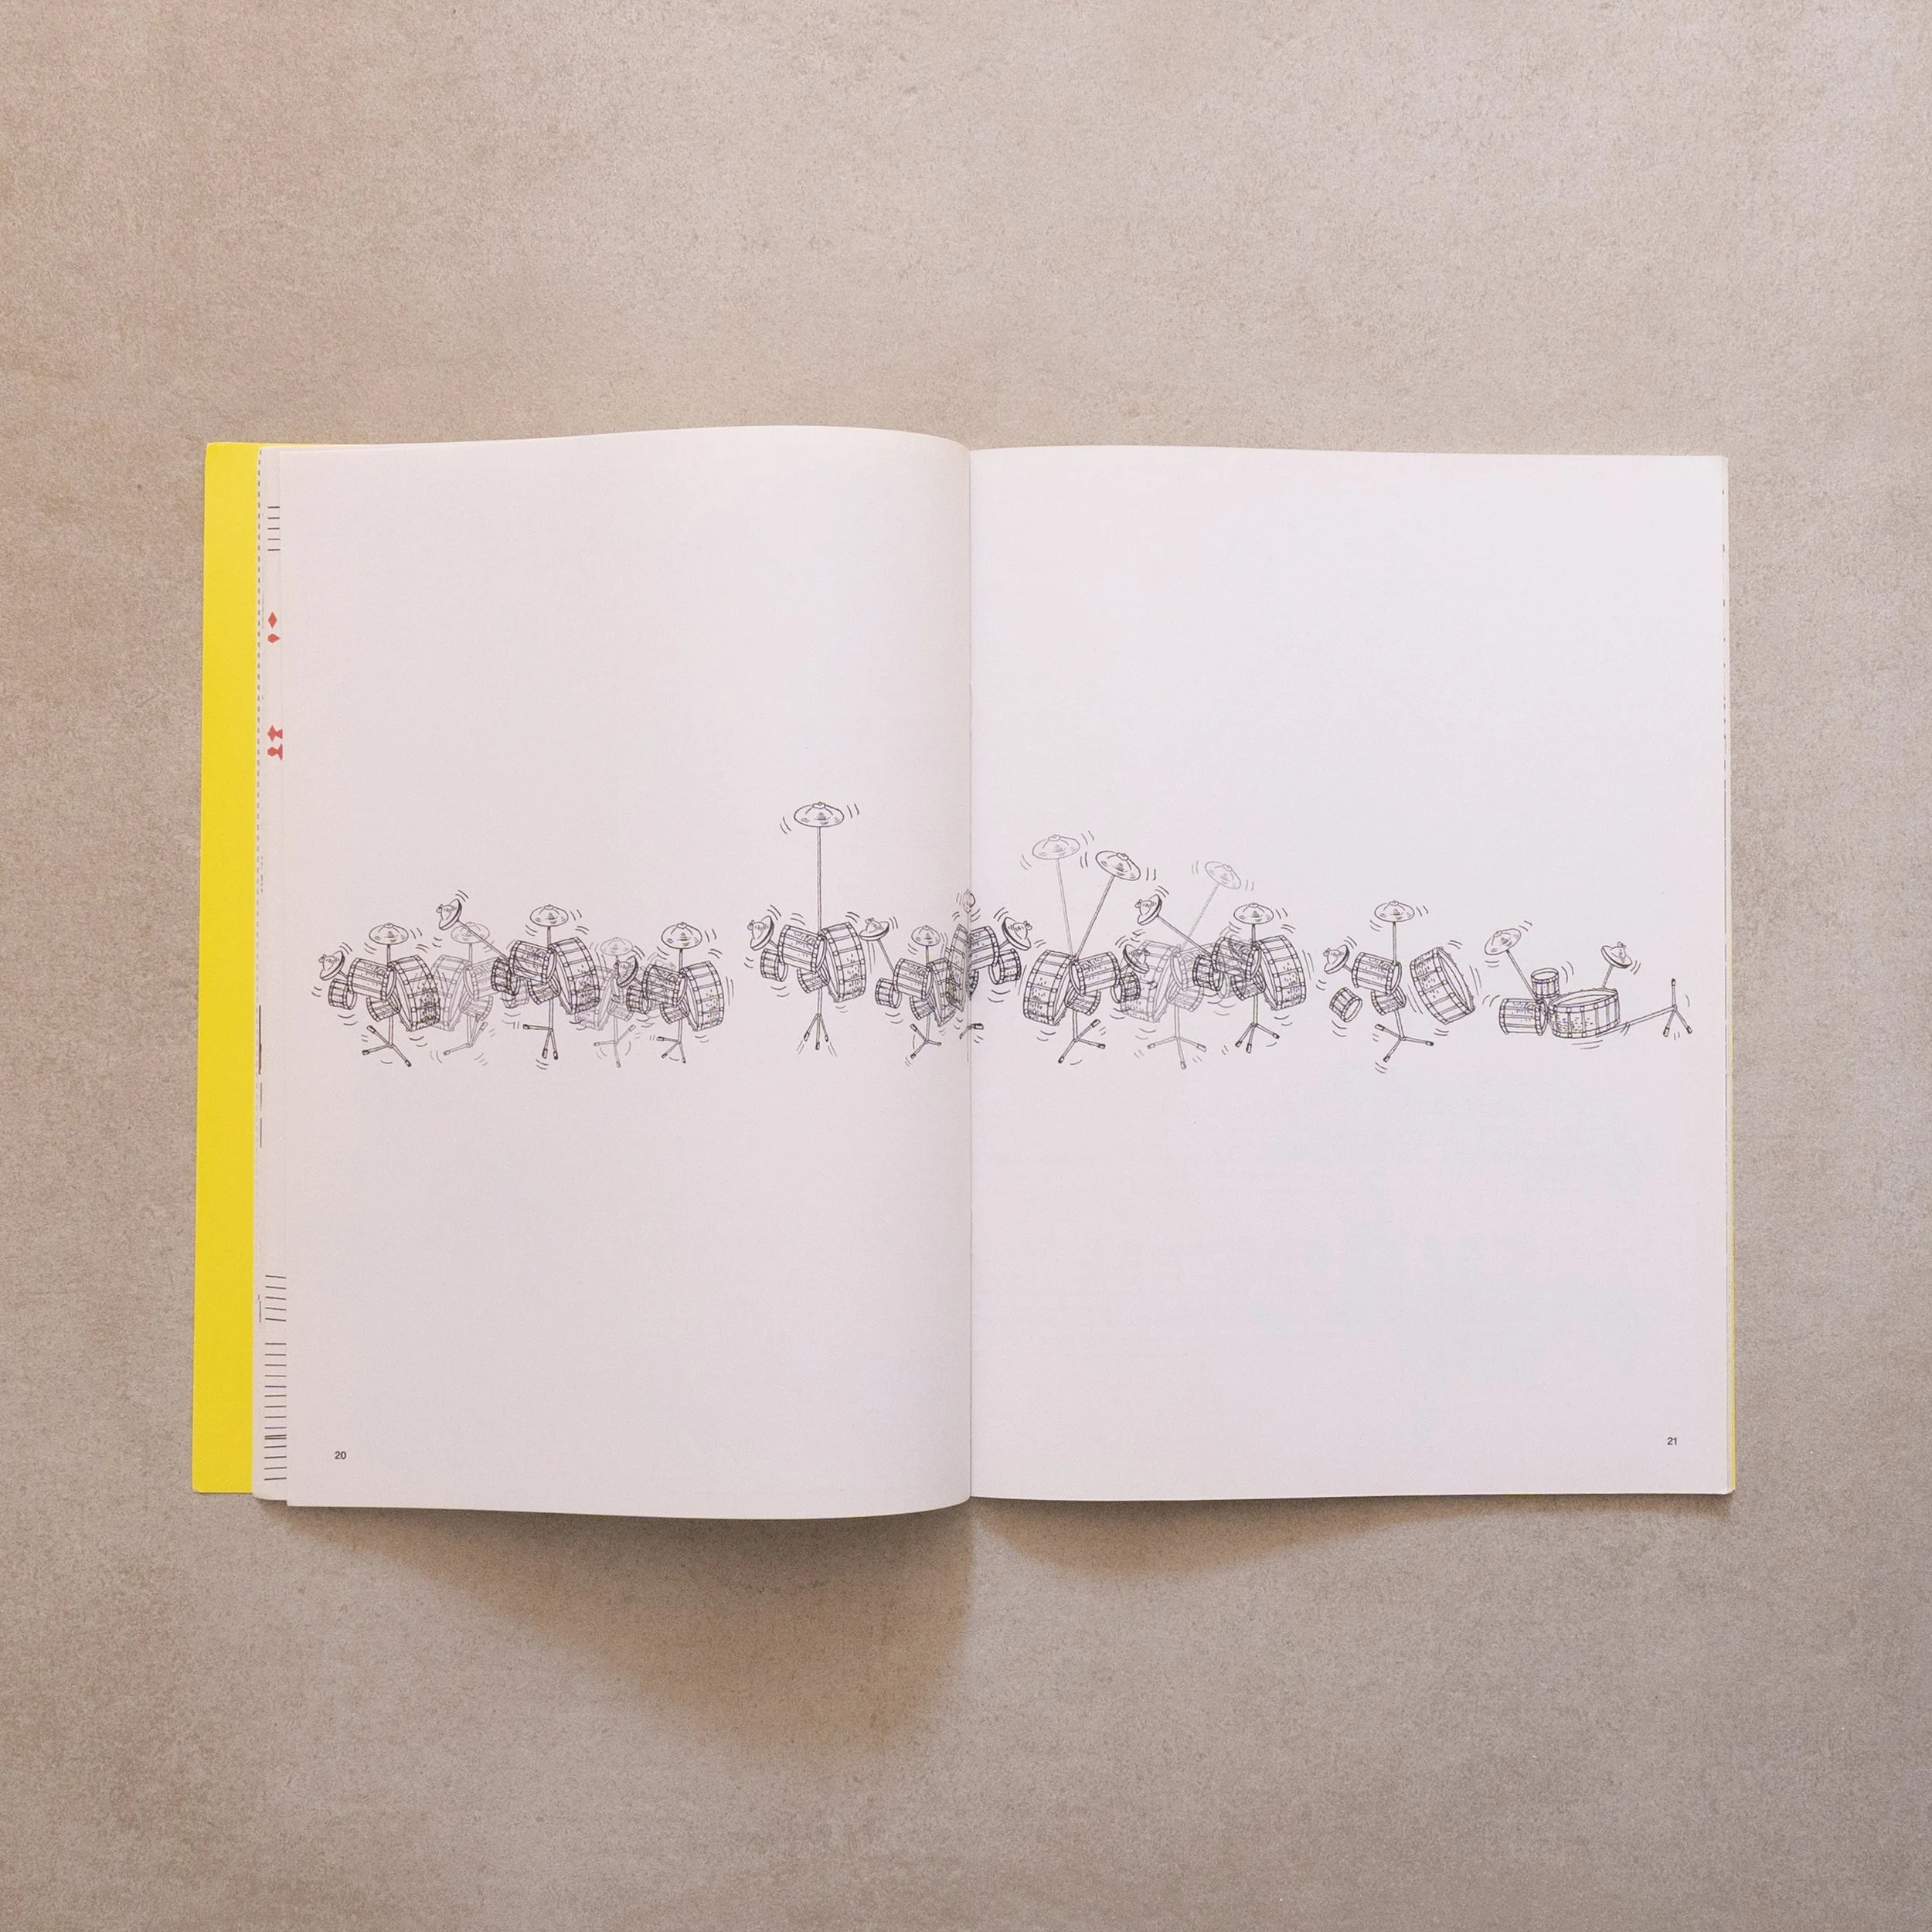 20
21